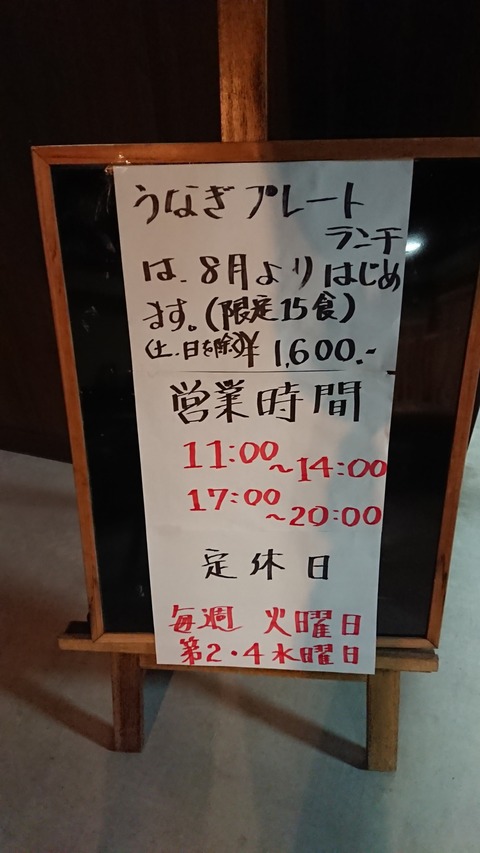 うなぎプレート
ランチ
は、8月よりはじめ
ます。(限定15食)
(土、日を除く)¥1,600.-
営業時間
11:00~14:00
17:00~20:00
定休日
毎週 火曜日
第2・4水曜日